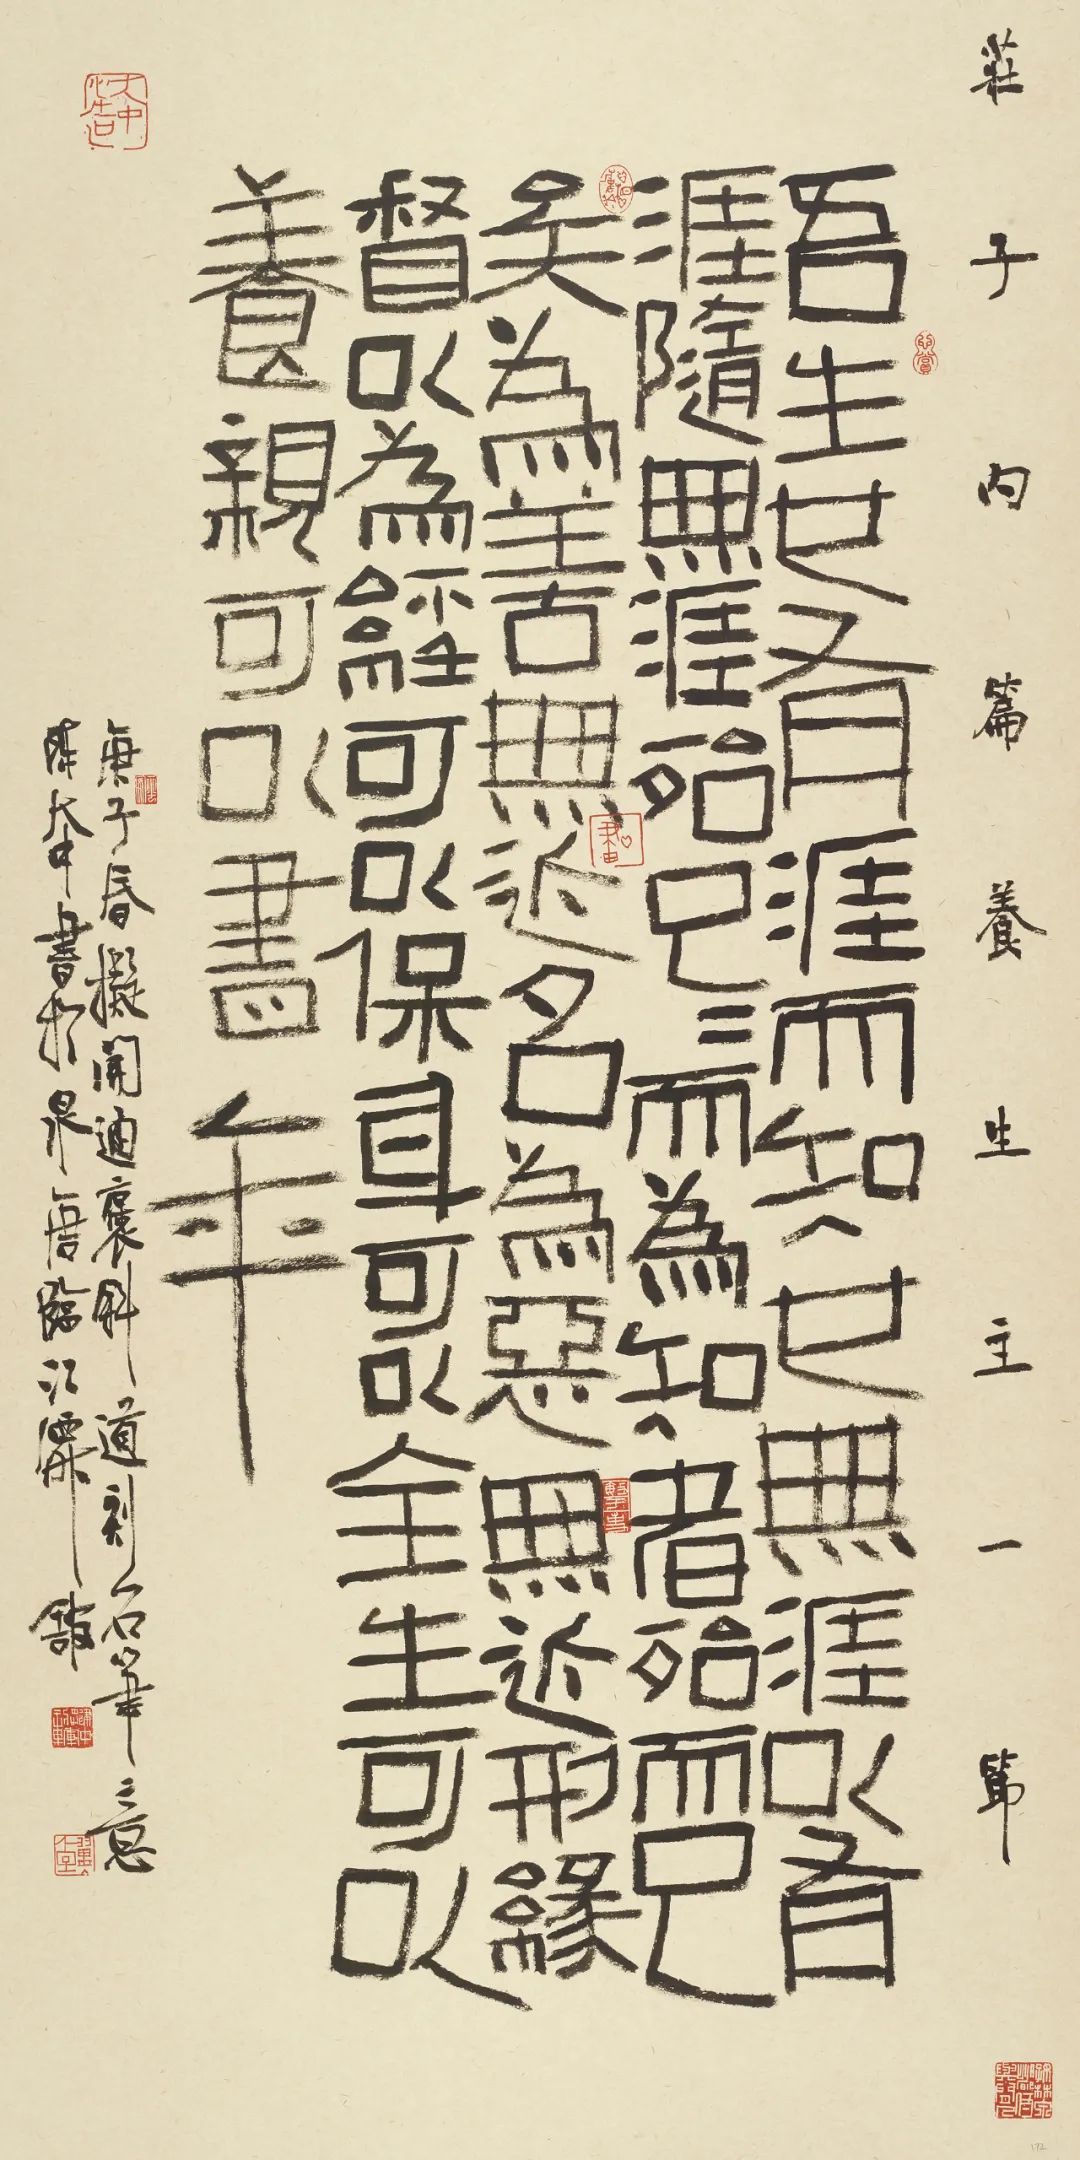 莊子內篇養生主一節
吾生也有涯而知也無涯以有
涯隨無涯殆已〻而為知者殆而已
矣為善無近名為惡無近刑緣
督以為經可以保身可以全生可以
養親可以盡年
庚子春擬開通褒斜道刻石筆意
陳大中書於泉唐臨江館